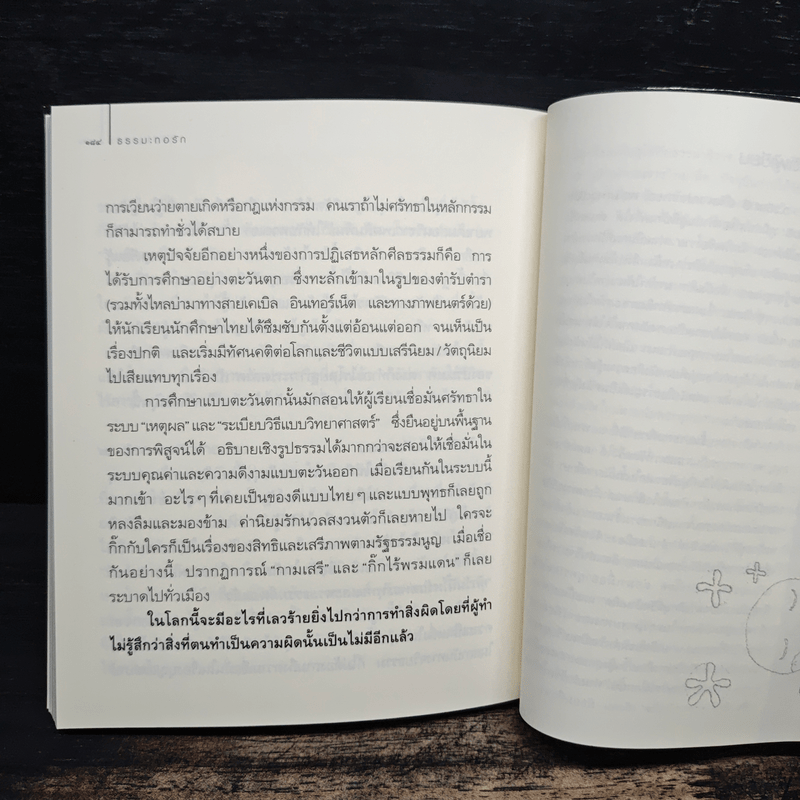 ๑๘๔ ธรรมะทอรัก
การเวียนว่ายตายเกิดหรือกฎแห่งกรรม คนเราถ้าไม่ศรัทธาในหลักกรรม
ก็สามารถทำชั่วได้สบาย
เหตุปัจจัยอีกอย่างหนึ่งของการปฏิเสธหลักศีลธรรมก็คือ การ
ได้รับการศึกษาอย่างตะวันตก ซึ่งทะลักเข้ามาในรูปของตำรับตำรา
(รวมทั้งไหลบ่ามาทางสายเคเบิล อินเทอร์เน็ต และทางภาพยนตร์ด้วย)
ให้นักเรียนนักศึกษาไทยได้ซึมซับกันตั้งแต่อ้อนแต่ออก จนเห็นเป็น
เรื่องปกติ และเริ่มมีทัศนคติต่อโลกและชีวิตแบบเสรีนิยม / วัตถุนิยม
ไปเสียแทบทุกเรื่อง
การศึกษาแบบตะวันตกนั้นมักสอนให้ผู้เรียนเชื่อมั่นศรัทธาใน
ระบบ "เหตุผล" และ "ระเบียบวิธีแบบวิทยาศาสตร์" ซึ่งยืนอยู่บนพื้นฐาน
ของการพิสูจน์ได้ อธิบายเชิงรูปธรรมได้มากกว่าจะสอนให้เชื่อมั่นใน
ระบบคุณค่าและความดีงามแบบตะวันออก เมื่อเรียนกันในระบบนี้
มากเข้า อะไร ๆ ที่เคยเป็นของดีแบบไทย ๆ และแบบพุทธก็เลยถูก
หลงลืมและมองข้าม ค่านิยมรักนวลสงวนตัวก็เลยหายไป ใครจะ
กิ๊กกับใครก็เป็นเรื่องของสิทธิและเสรีภาพตามรัฐธรรมนูญ เมื่อเชื่อ
กันอย่างนี้ ปรากฏการณ์ "กามเสรี" และ "กิ๊กไร้พรมแดน" ก็เลย
ระบาดไปทั่วเมือง
ในโลกนี้จะมีอะไรที่เลวร้ายยิ่งไปกว่าการทำสิ่งผิดโดยที่ผู้ทำ
ไม่รู้สึกว่าสิ่งที่ตนทำเป็นความผิดนั้นเป็นไม่มีอีกแล้ว